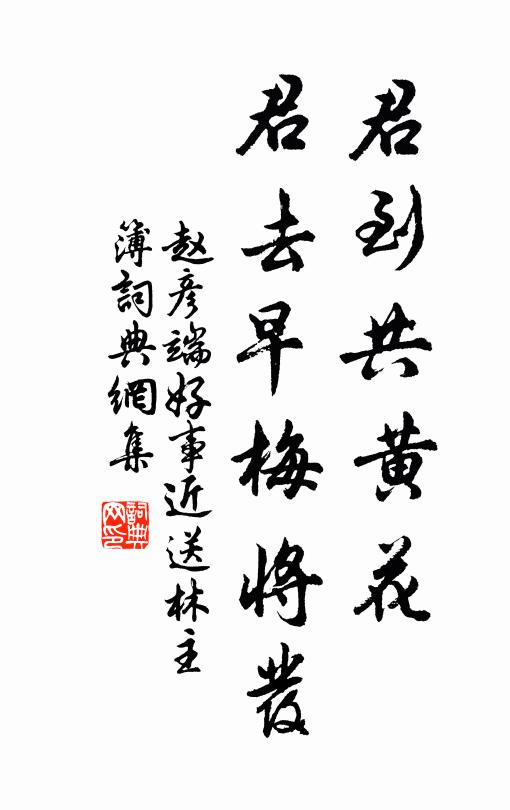 君到共黄花
君去早梅将發
赵彦端好事近送林主
簿詞典網集
詞典
网印